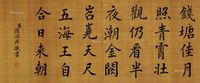 錢塘佳月
照青霄壯
觀仍看半
夜潮金闕
岧嶤天尺
五海王自
合日來朝